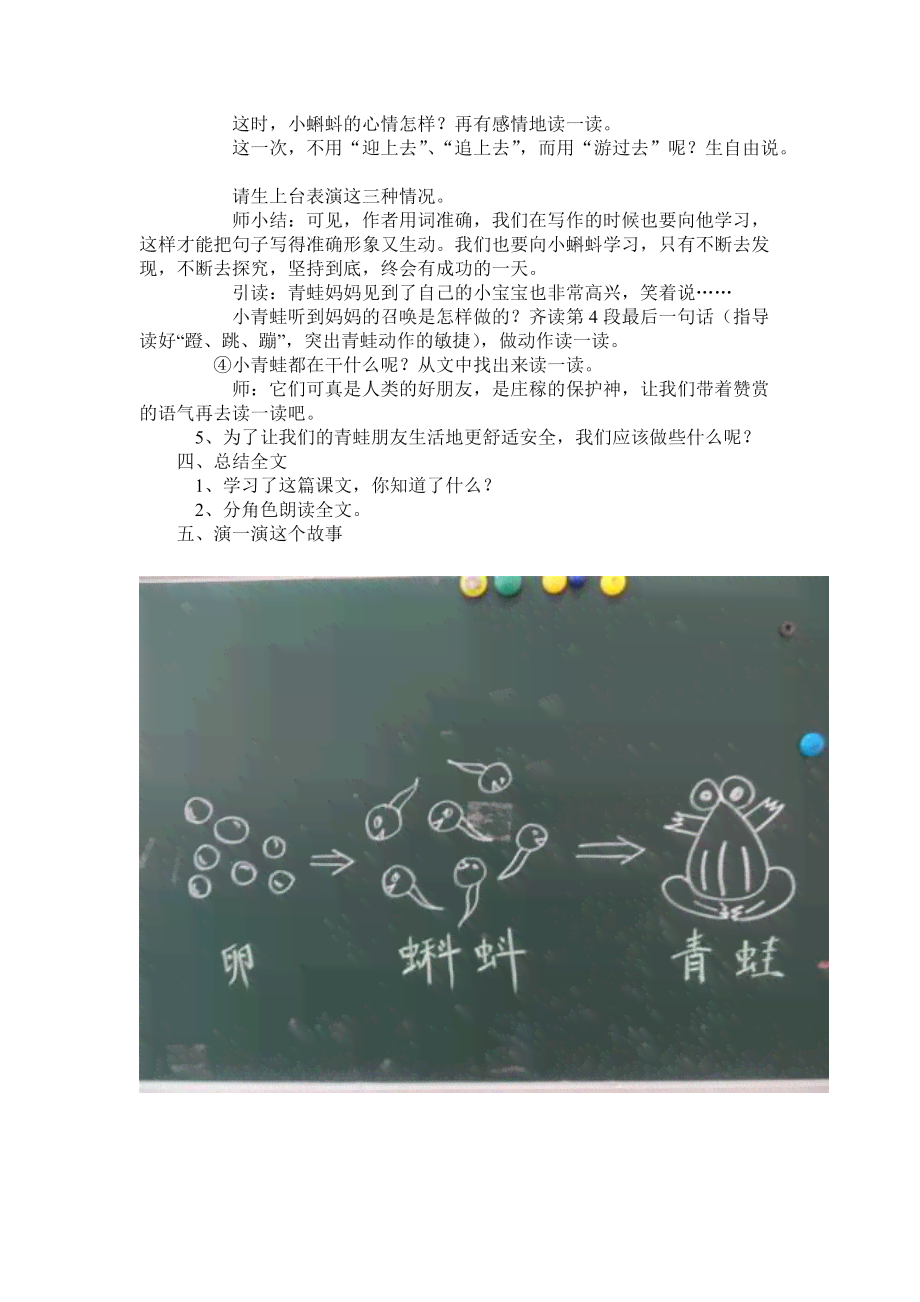 这时，小蝌蚪的心情怎样？再有感情地读一读。
这一次，不用“迎上去”、“追上去”，而用“游过去”呢？生自由说。
请生上台表演这三种情况。
师小结：可见，作者用词准确，我们在写作的时候也要向他学习，
这样才能把句子写得准确形象又生动。我们也要向小蝌蚪学习，只有不断去发
现，不断去探究，坚持到底，终会有成功的一天。
引读：青蛙妈妈见到了自己的小宝宝也非常高兴，笑着说……
小青蛙听到妈妈的召唤是怎样做的？齐读第 4 段最后一句话（指导
读好“蹬、跳、蹦”，突出青蛙动作的敏捷），做动作读一读。
④小青蛙都在干什么呢？从文中找出来读一读。
师：它们可真是人类的好朋友，是庄稼的保护神，让我们带着赞赏
的语气再去读一读吧。
5、为了让我们的青蛙朋友生活地更舒适安全，我们应该做些什么呢？
四、总结全文
1、学习了这篇课文，你知道了什么？
2、分角色朗读全文。
五、演一演这个故事
卵 蝌蚪 青蛙